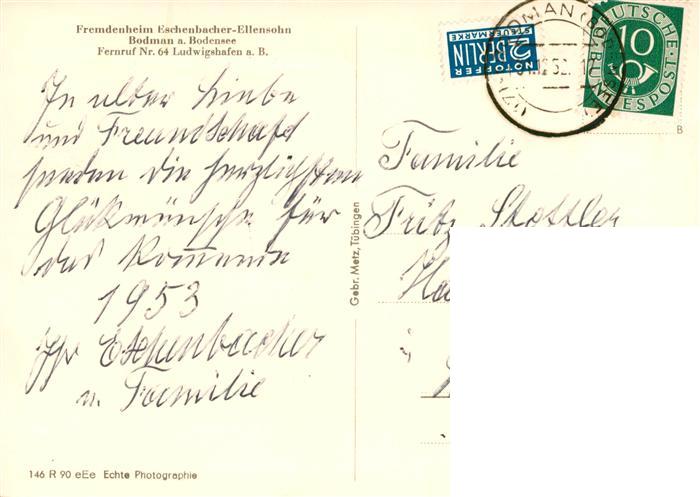 Fremdenheim Eschenbacher-Ellensohn
Bodman a. Bodensee
Fernruf Nr. 64 Ludwigshafen a. B.
In alter Liebe
und Freundschaft
senden die herzlichsten
Glükwünsche für
das Kommende
1953
Ihr Eschenbacher
u. Familie
146 R 90 eEe Echte Photographie
Gebr. Metz, Tübingen
NOTOPFER
2 BERLIN
STEUERMARKE
BODMAN
DEUTSCHE
10
BUNDESPOST
B
Familie
Fritz Stottler